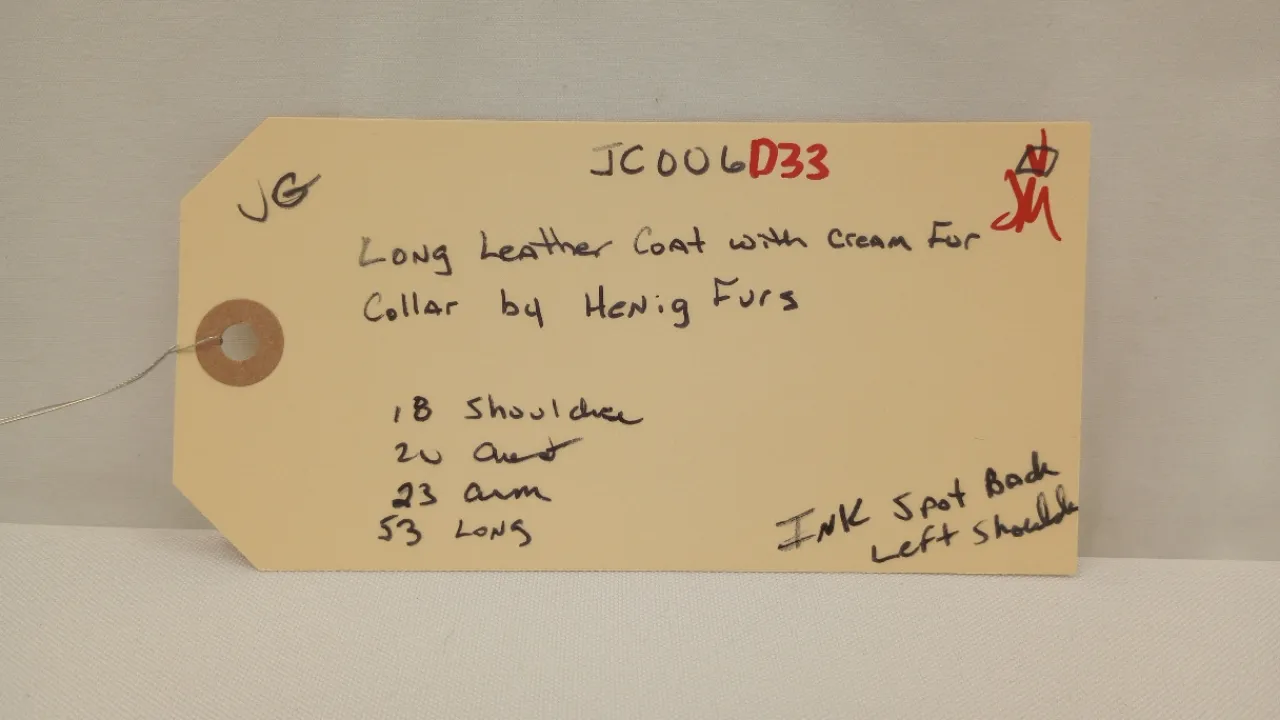 JC006D33
JG
JM
Long Leather Coat with Cream Fur
Collar by Henig Furs
18 Shoulder
20 Chest
23 arm
53 Long
Ink Spot Back
Left Shoulder